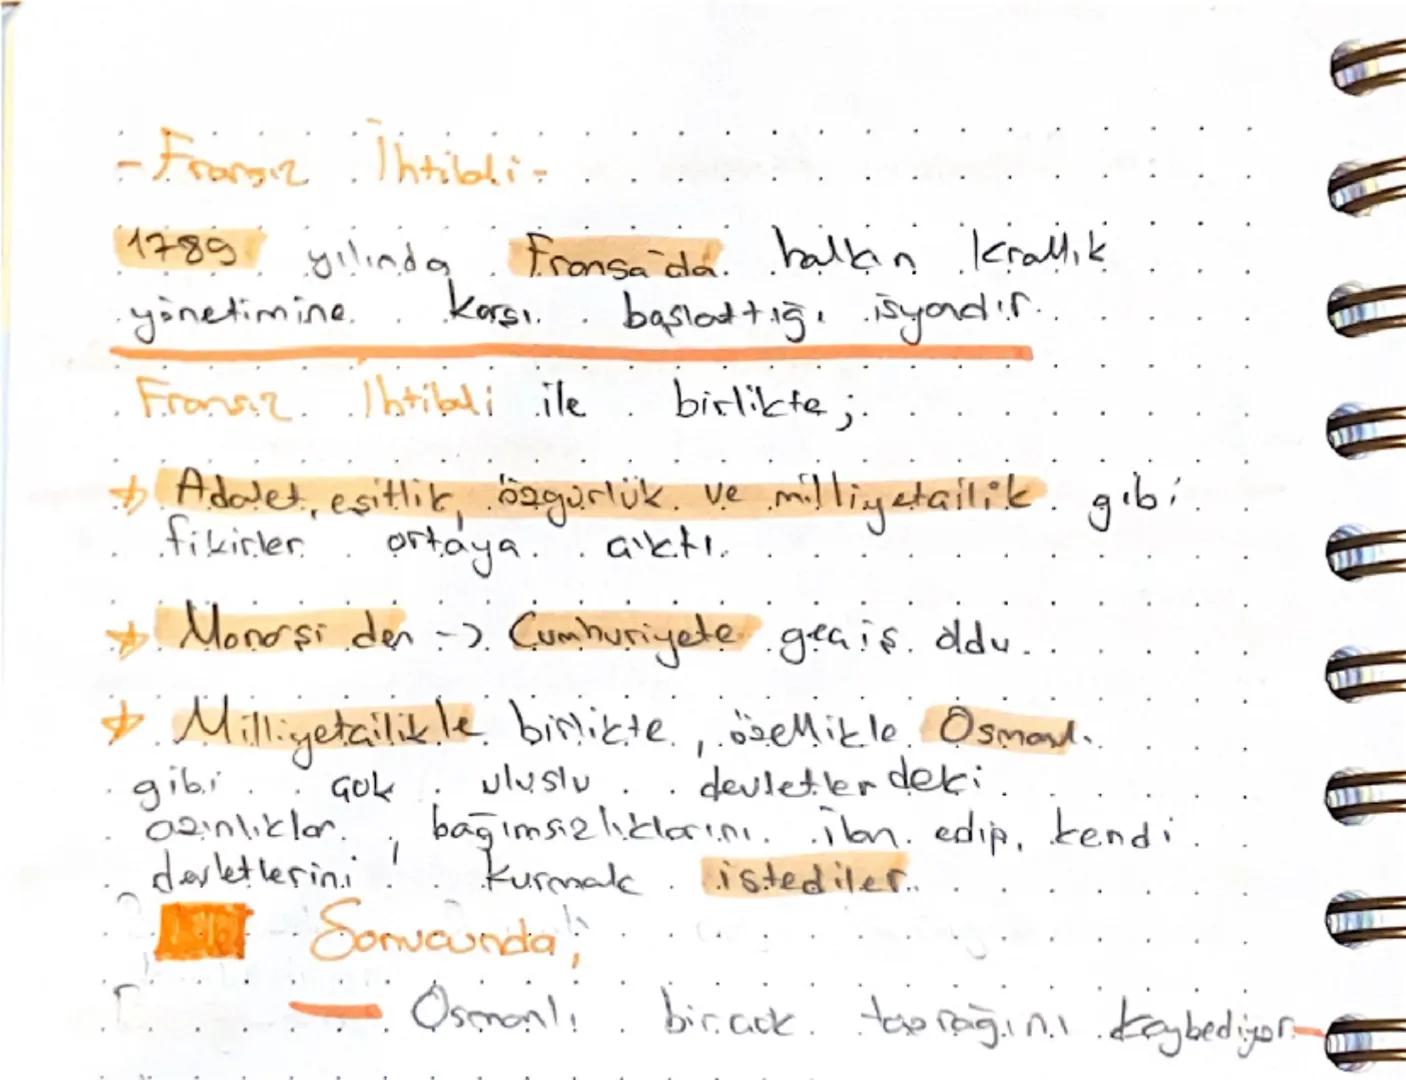 -Fransız İhtilali-
1789 yılında Fransa'da halkın krallık
yönetimine karşı başlattığı isyandır.
Fransız İhtilali ile birlikte;
Adalet, eşitlik, özgürlük ve milliyetçilik gibi
fikirler ortaya çıktı.
Monarşi den -> Cumhuriyete geçiş oldu.
Milliyetçilikle birlikte, özellikle Osmanlı
gibi çok uluslu devletler deki
azınlıklar, bağımsızlıklarını ilan edip, kendi
devletlerini kurmak istediler.
Sonucunda;
Osmanlı birçok toprağını kaybediyor